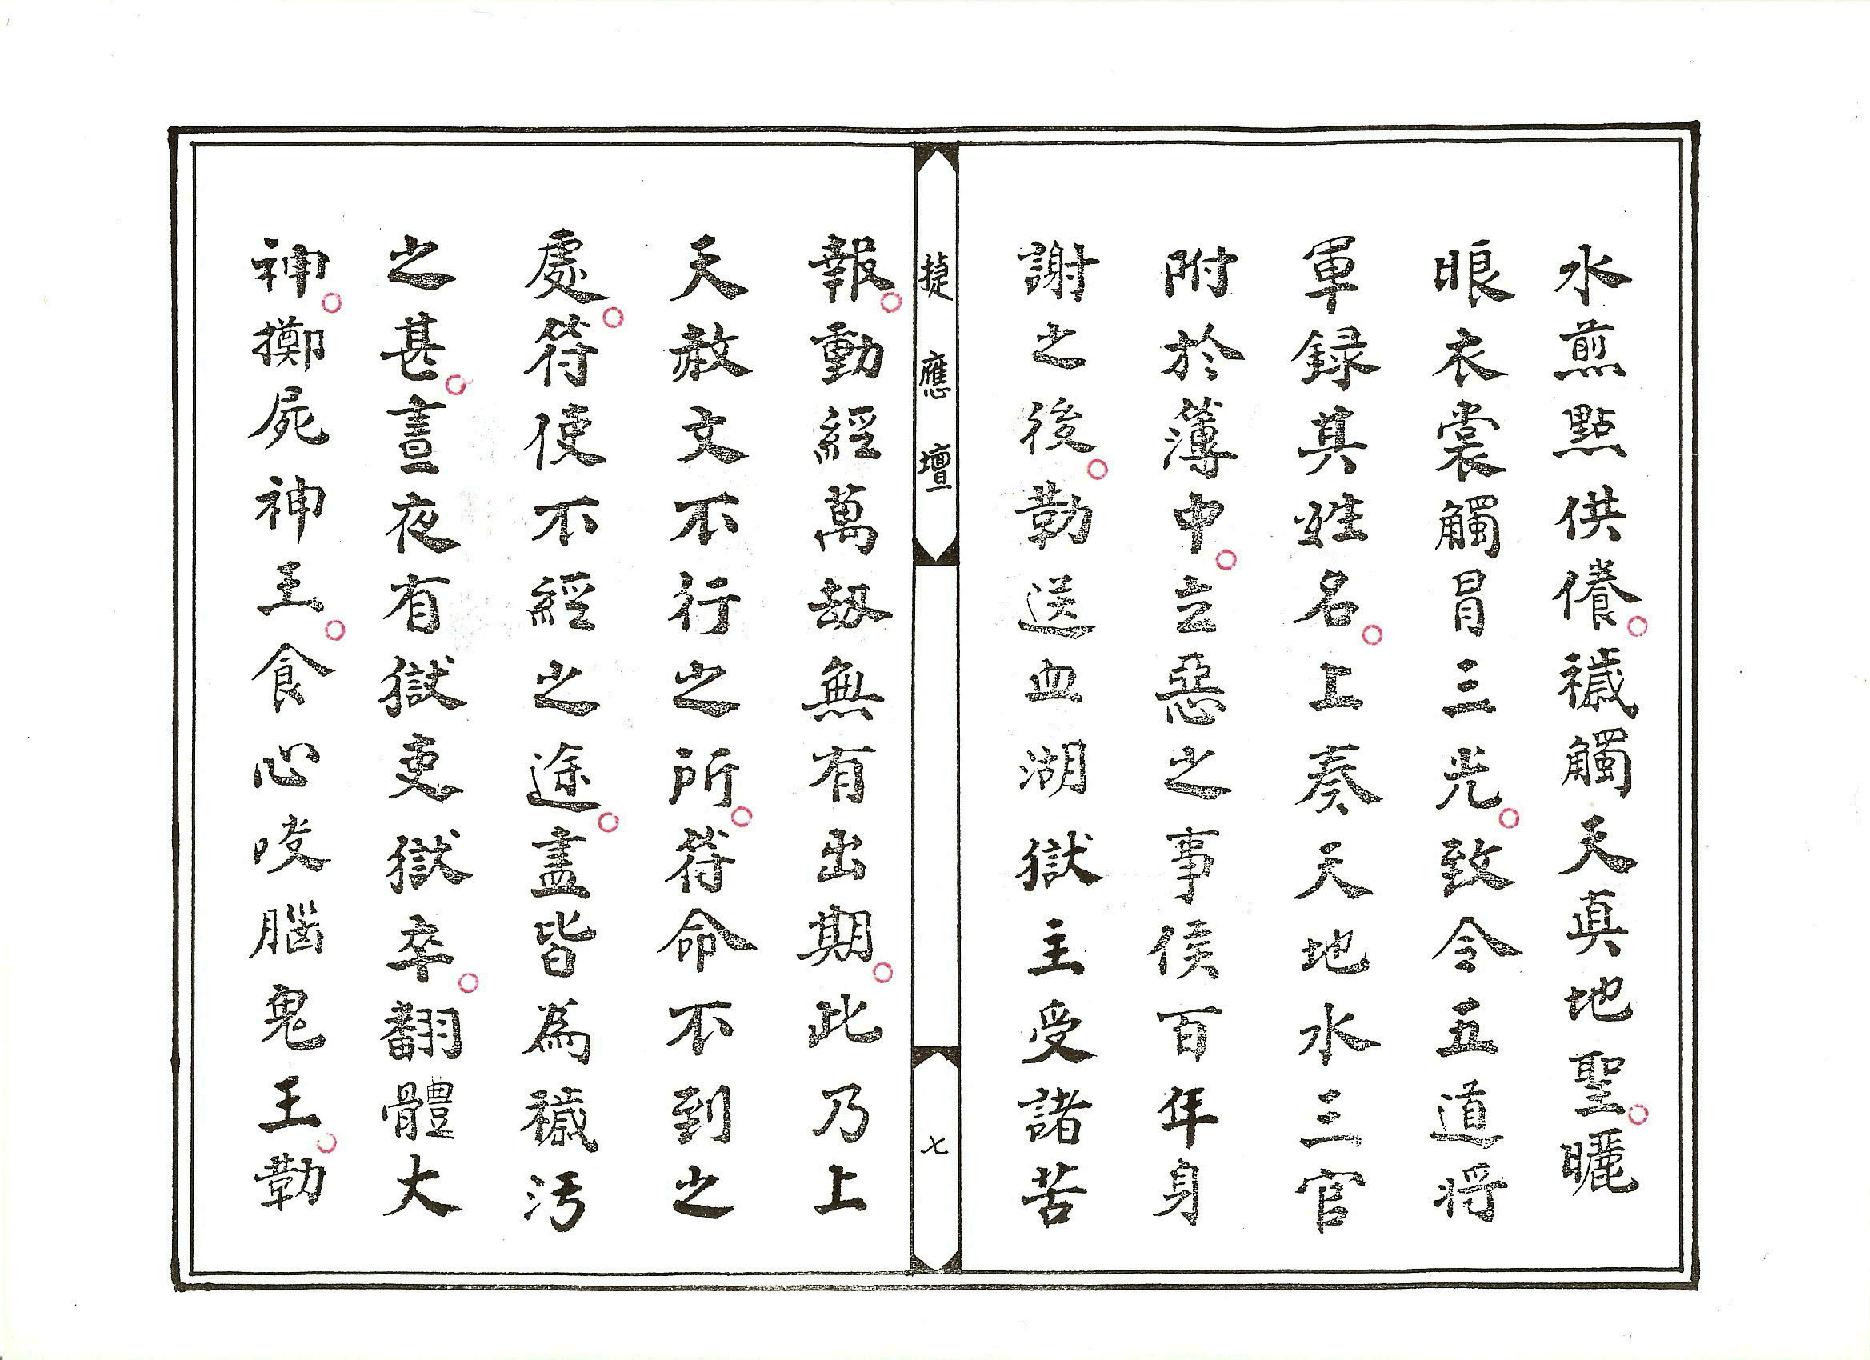 水煎點供養。穢觸天真地聖。曬
眼衣裳觸冒三光。致令五道將
軍録其姓名。上奏天地水三官
附於薄中。立惡之事侯百年身
謝之後。勒送血湖獄主受諸苦
捷應壇
七
報。動經萬劫無有出期。此乃上
天赦文不行之所。符命不到之
處。符使不經之途。盡皆為穢污
之甚。晝夜有獄吏獄卒。翻體大
神。擲屍神王。食心啖腦鬼王。勒